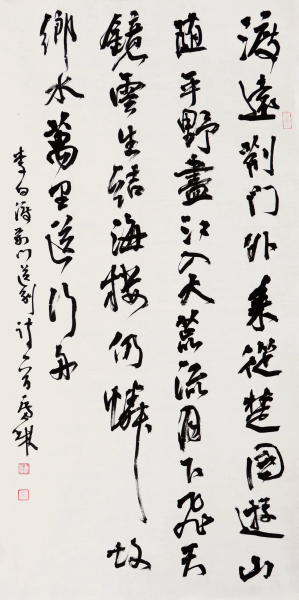 渡遠荆门外来從楚國遊山
随平野盡江入大荒流月下飛天
鏡雲生結海樓仍憐故
鄉水萬里送行舟
李白渡荆门送别诗一首